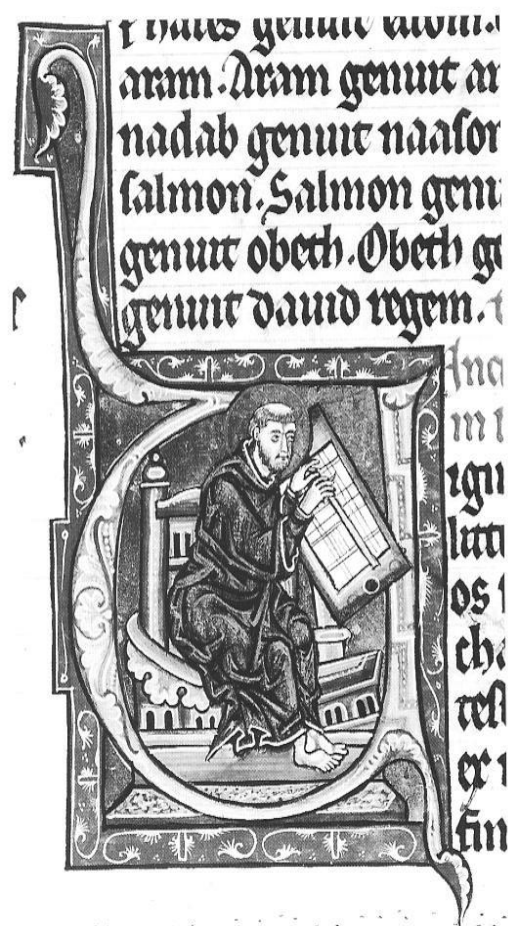 genuit
aram. Aram genuit ar
nadab genuit naason
salmon. Salmon genu
genuit obeth. Obeth ge
genuit dauid regem.
Inci
m
igu
litt
os
cha
test
er
fin